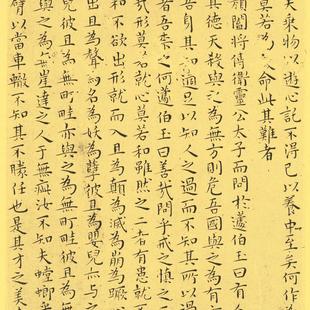 夫乘物以遊心託不得已以養中至矣何作為
莫若為致命此其難者
顏闔將傅衛靈公太子而問於蘧伯玉曰有人
其德天殺與之為無方則危吾國與之為有方
吾身其知適足以知人之過而不知其所以過
者吾柰之何蘧伯玉曰善哉問乎戒之慎之
哉形莫若就心莫若和雖然之二者有患就
和不欲出形就而入且為顛為滅為崩為蹶
出且為聲為名為妖為孽彼且為嬰兒亦與之
兒彼且為無町畦亦與之為無町畦彼且為
與之為無崖達之入于無疵汝不知夫螳螂乎
臂以當車轍不知其不勝任也是其才之美